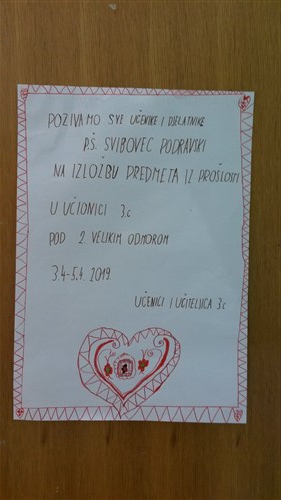 POZIVAMO SVE UČENIKE I DJELATNIKE
P.Š. SVIBOVEC PODRAVSKI
NA IZLOŽBU PREDMETA IZ PROŠLOSTI
U UČIONICI 3.c
POD 2. VELIKIM ODMOROM
3.4.-5.4. 2019.
UČENICI I UČITELJICA 3.c